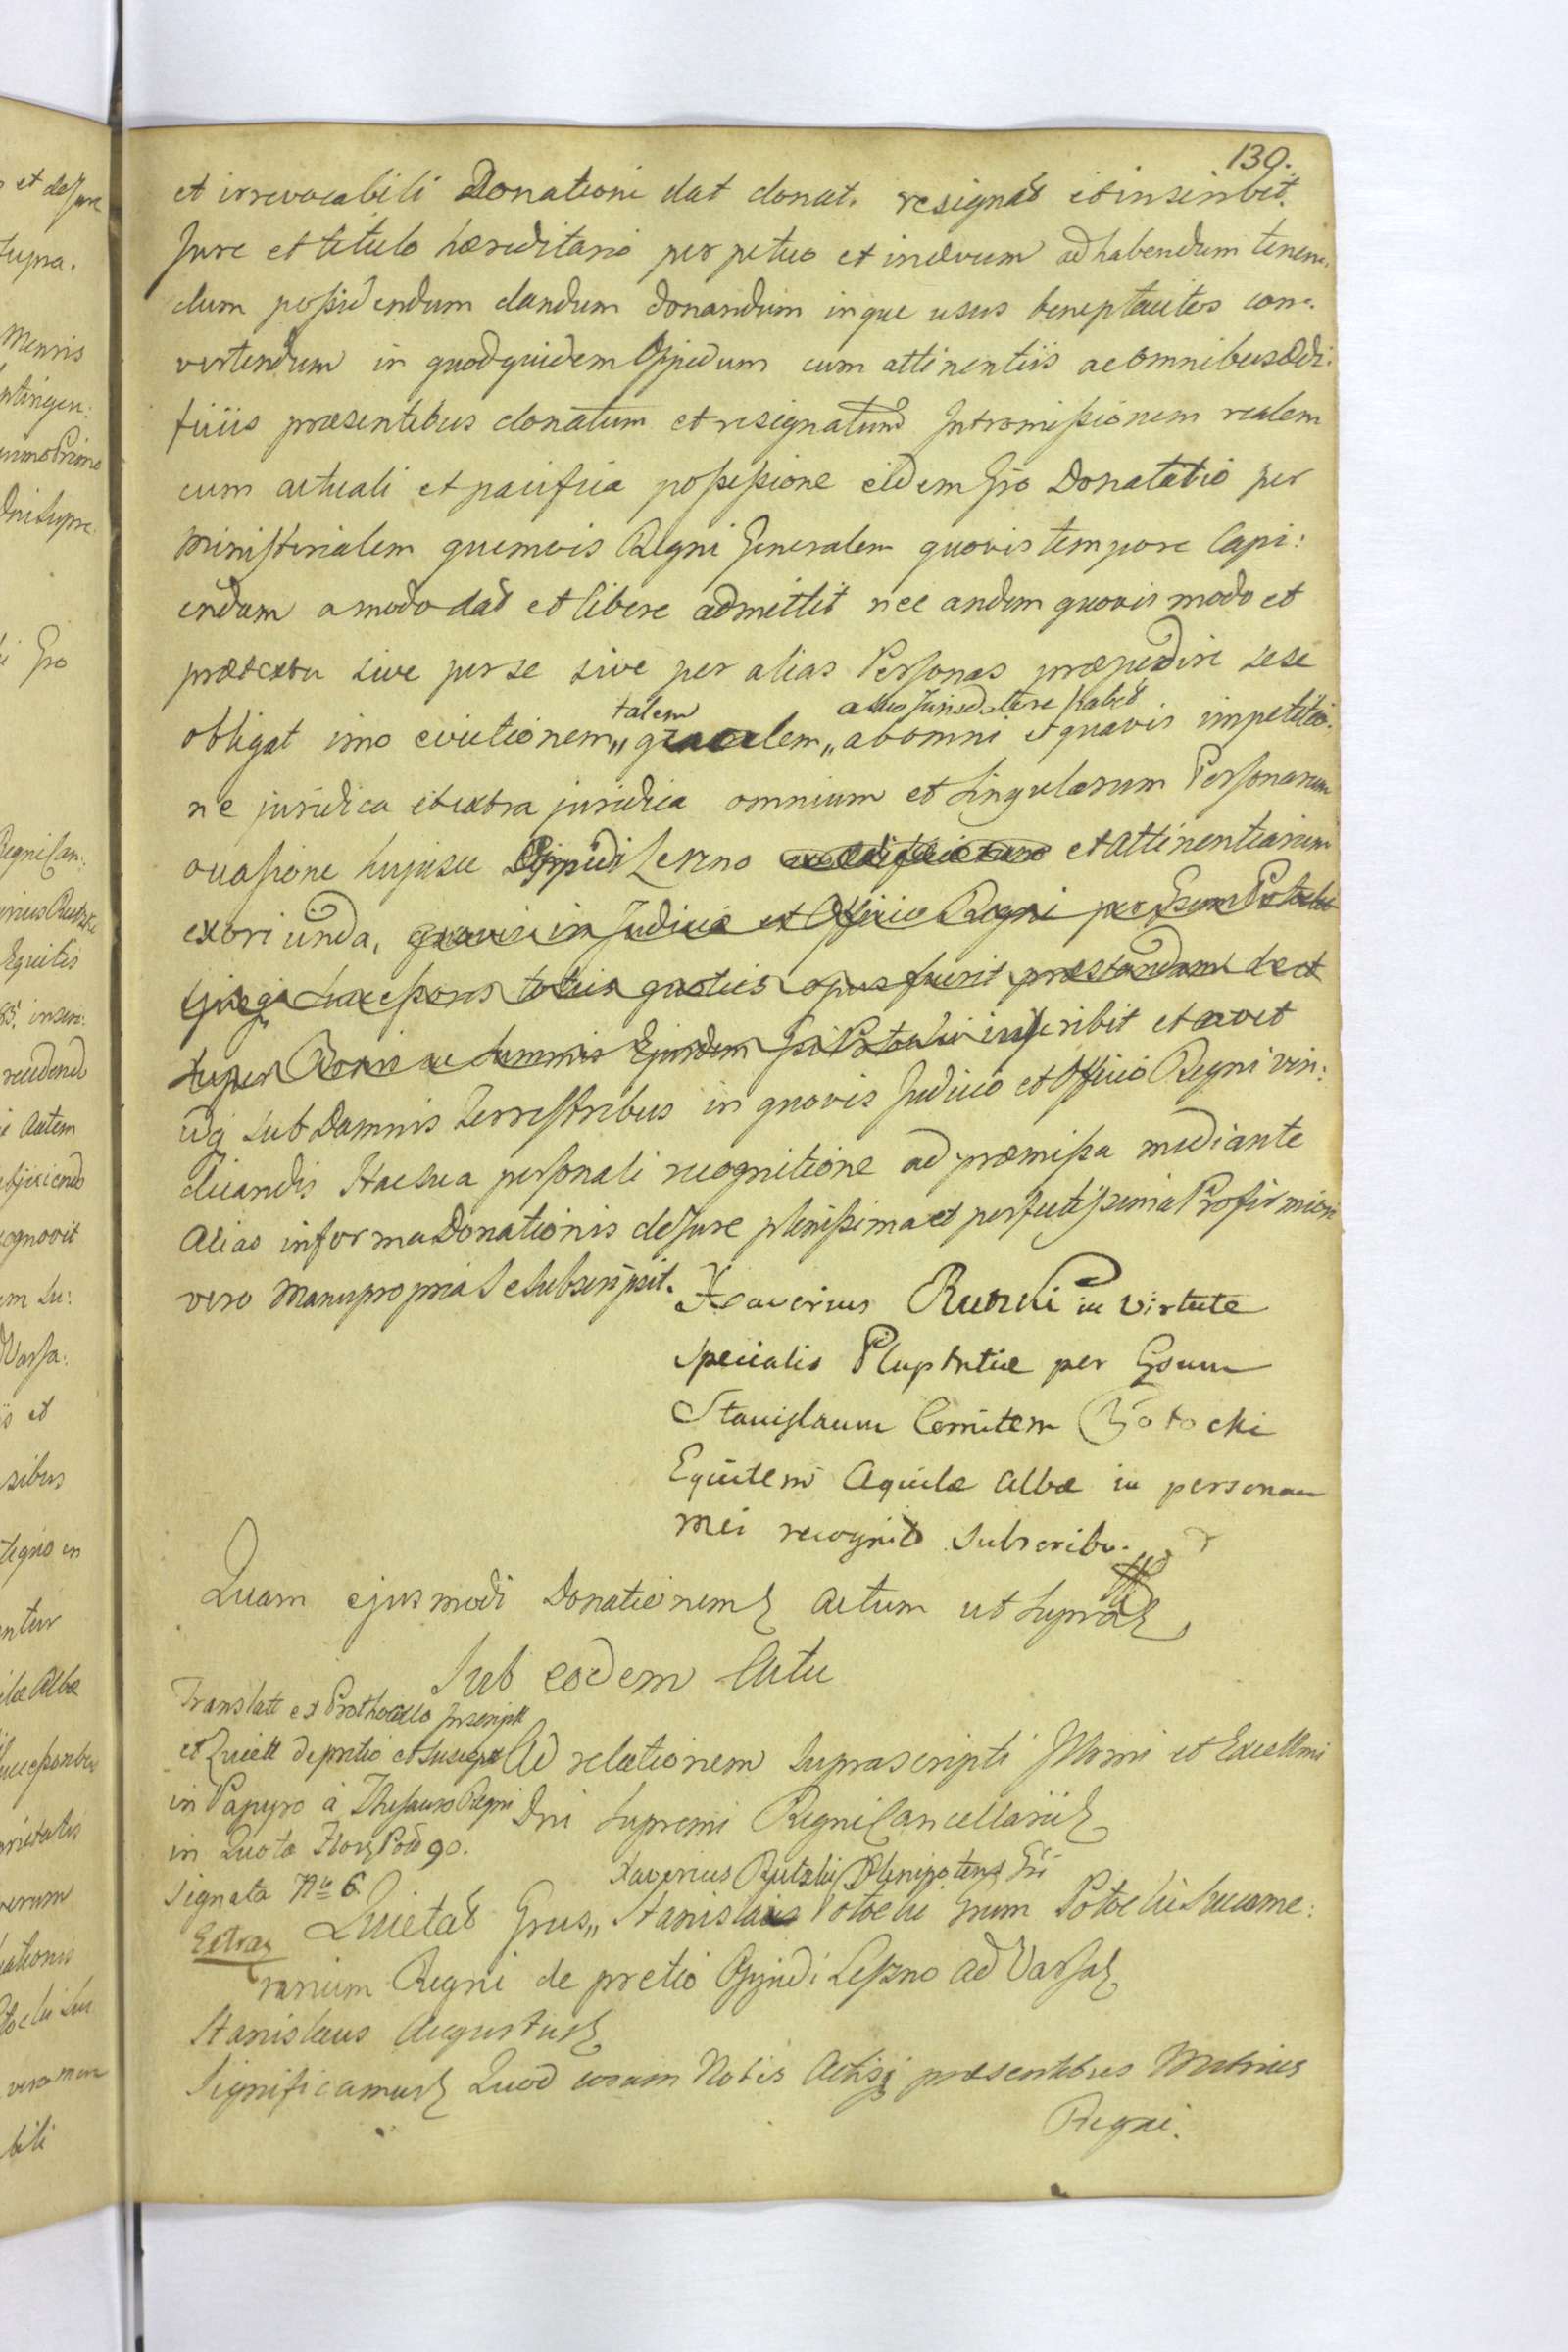 139.
et irrevocabili Donatione dat donat. resignat et inscribit.
Jure et titulo hæreditario perpetuo et inævum ad habendum tenen:
dum possidendum dandum donandum inque usus beneplacitos con:
vertendum in quodquidem Oppidum cum attinentiis ac omnibus ædi:
ficiis præsentibus donatum et resignatum Intromissionem realem
cum actuali et pacifica possessione eidem Gso Donatario per
Ministerialem quemvis Regni Generalem quovis tempore Capi:
endam amodo dat et libere admittit nec eandem quovis modo et
prætextu sive per se sive per alias Personas præpedire sese
talem
obligat imo evictionem „ „ ab omni et quavis impetitio:
ne juridica et extra juridica omnium et singularum Personarum
occasione hujusce Oppidi Leszno et Attinentiarum
exoriunda, quavis in Judicio et Officio Regni per Gsum Potocki
Ejusq Successores toties quoties opus fuerit præstandam de et
super Bonis ac summis Ejusdem Gsi Potocki inscribit et cavet
idq sub Damnis Terrestribus in quovis Judicio et Officio Regni vin:
dicandis Hac sua personali recognitione ad præmissa mediante
Alias in forma Donationis de Jure plenissima et perfectissima Pro firmiori
vero Manu propria se subscripsit.
Xaverius Rutski in Virtute
specialis Pleptntiæ per Gsum
Stanislaum Comitem Potocki
Equitem Aquilæ Albæ in personam
mei recognit subscribo.
Quam ejusmodi Donationem Actum ut supra
Sub eodem Actu
Translatt ex Prothocollo Inscriptt
et Quiett de pretio et suscept
in Papyro à Thesauro Regni
in Quota Flor Pol 90.
Signata No 6.
Extrad
Ad relationem suprascripti Illmi et Excellmi
Dni Supremi Regni Cancellarii
Xaverius Rutski Plenipotens Gsi
Quietat Gsus „ Stanislaus Potocki Gsum Potocki Succame:
rarium Regni de pretio Oppidi Leszno ad Varsa
Stanislaus Augustus
Significamus Quod coram Nobis Actisq præsentibus Metrices
Regni.